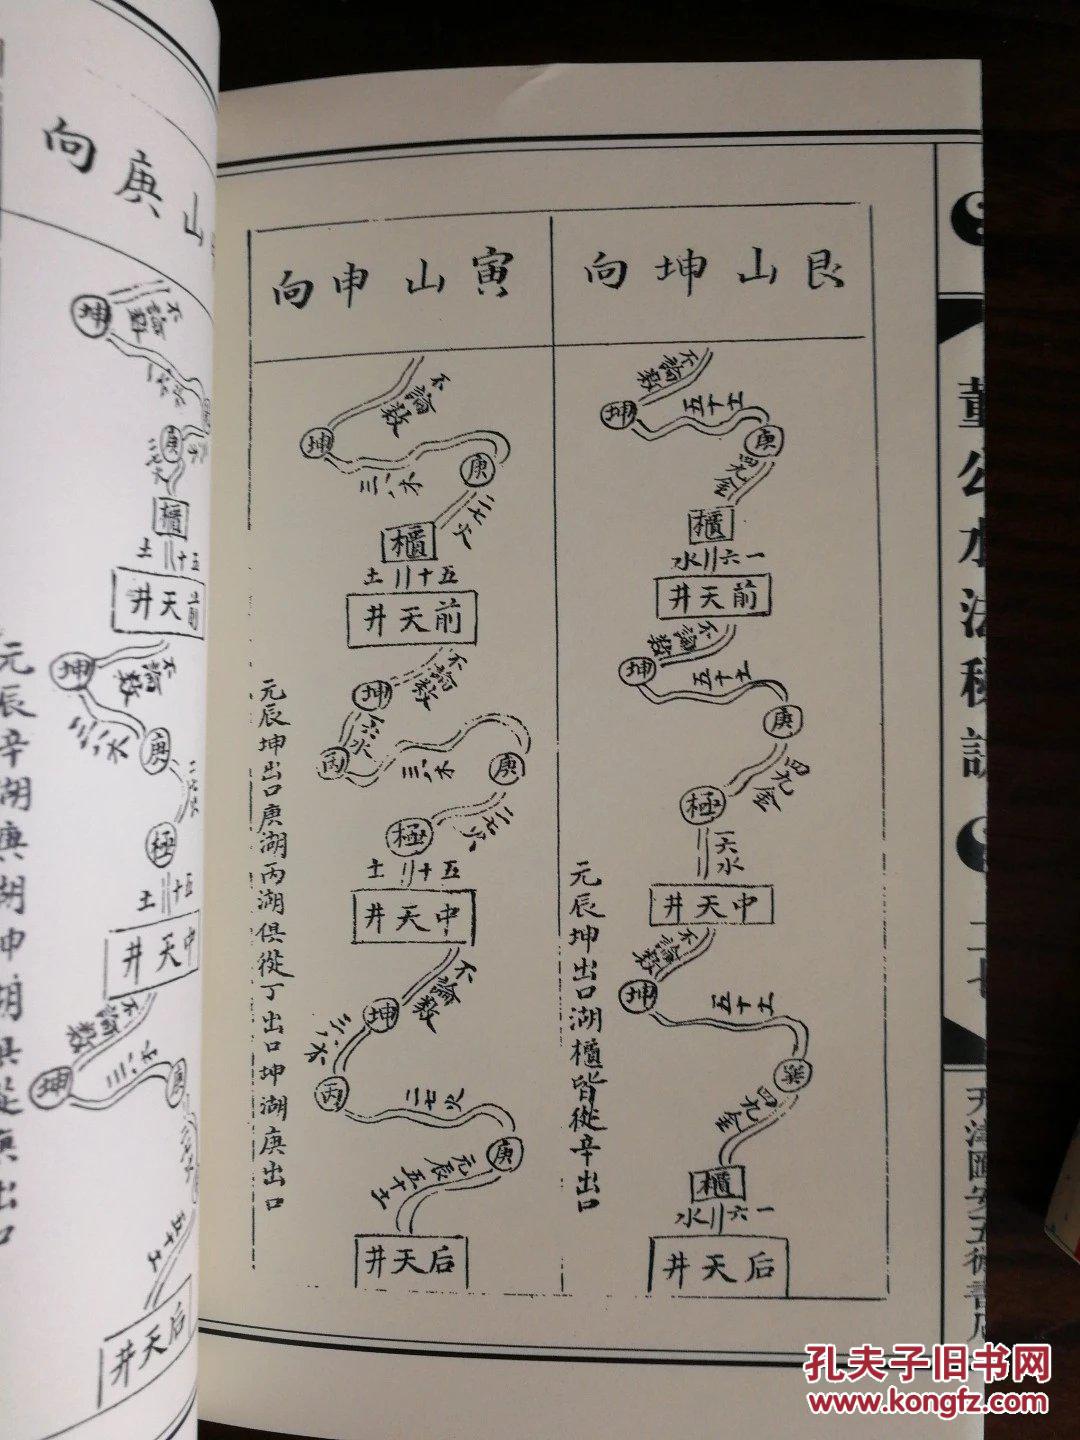 艮山坤向
不論數
坤
五十土
庚
四九金
櫃
一六水
前天井
不論數
坤
五十土
庚
四九金
極
一六水
中天井
不論數
坤
五十土
四九金
櫃
一六水
后天井
元辰坤出口湖櫃皆從辛出口
寅山申向
不論數
坤
三八木
庚
二七火
櫃
五十土
前天井
不論數
坤
一六水
丙
三八木
庚
二七火
極
五十土
中天井
不論數
坤
三八木
丙
二七火
庚
元辰
五十土
后天井
元辰坤出口庚湖丙湖俱從丁出口坤湖庚出口
山庚向
不論數
坤
三八木
庚
二七火
櫃
五十土
前天井
不論數
坤
三八木
庚
二七火
極
五十土
中天井
不論數
坤
三八木
庚
五十土
后天井
元辰辛湖庚湖坤湖俱從庚出口
董公水法秘訣
二七
孔夫子旧书网
www.kongfz.com